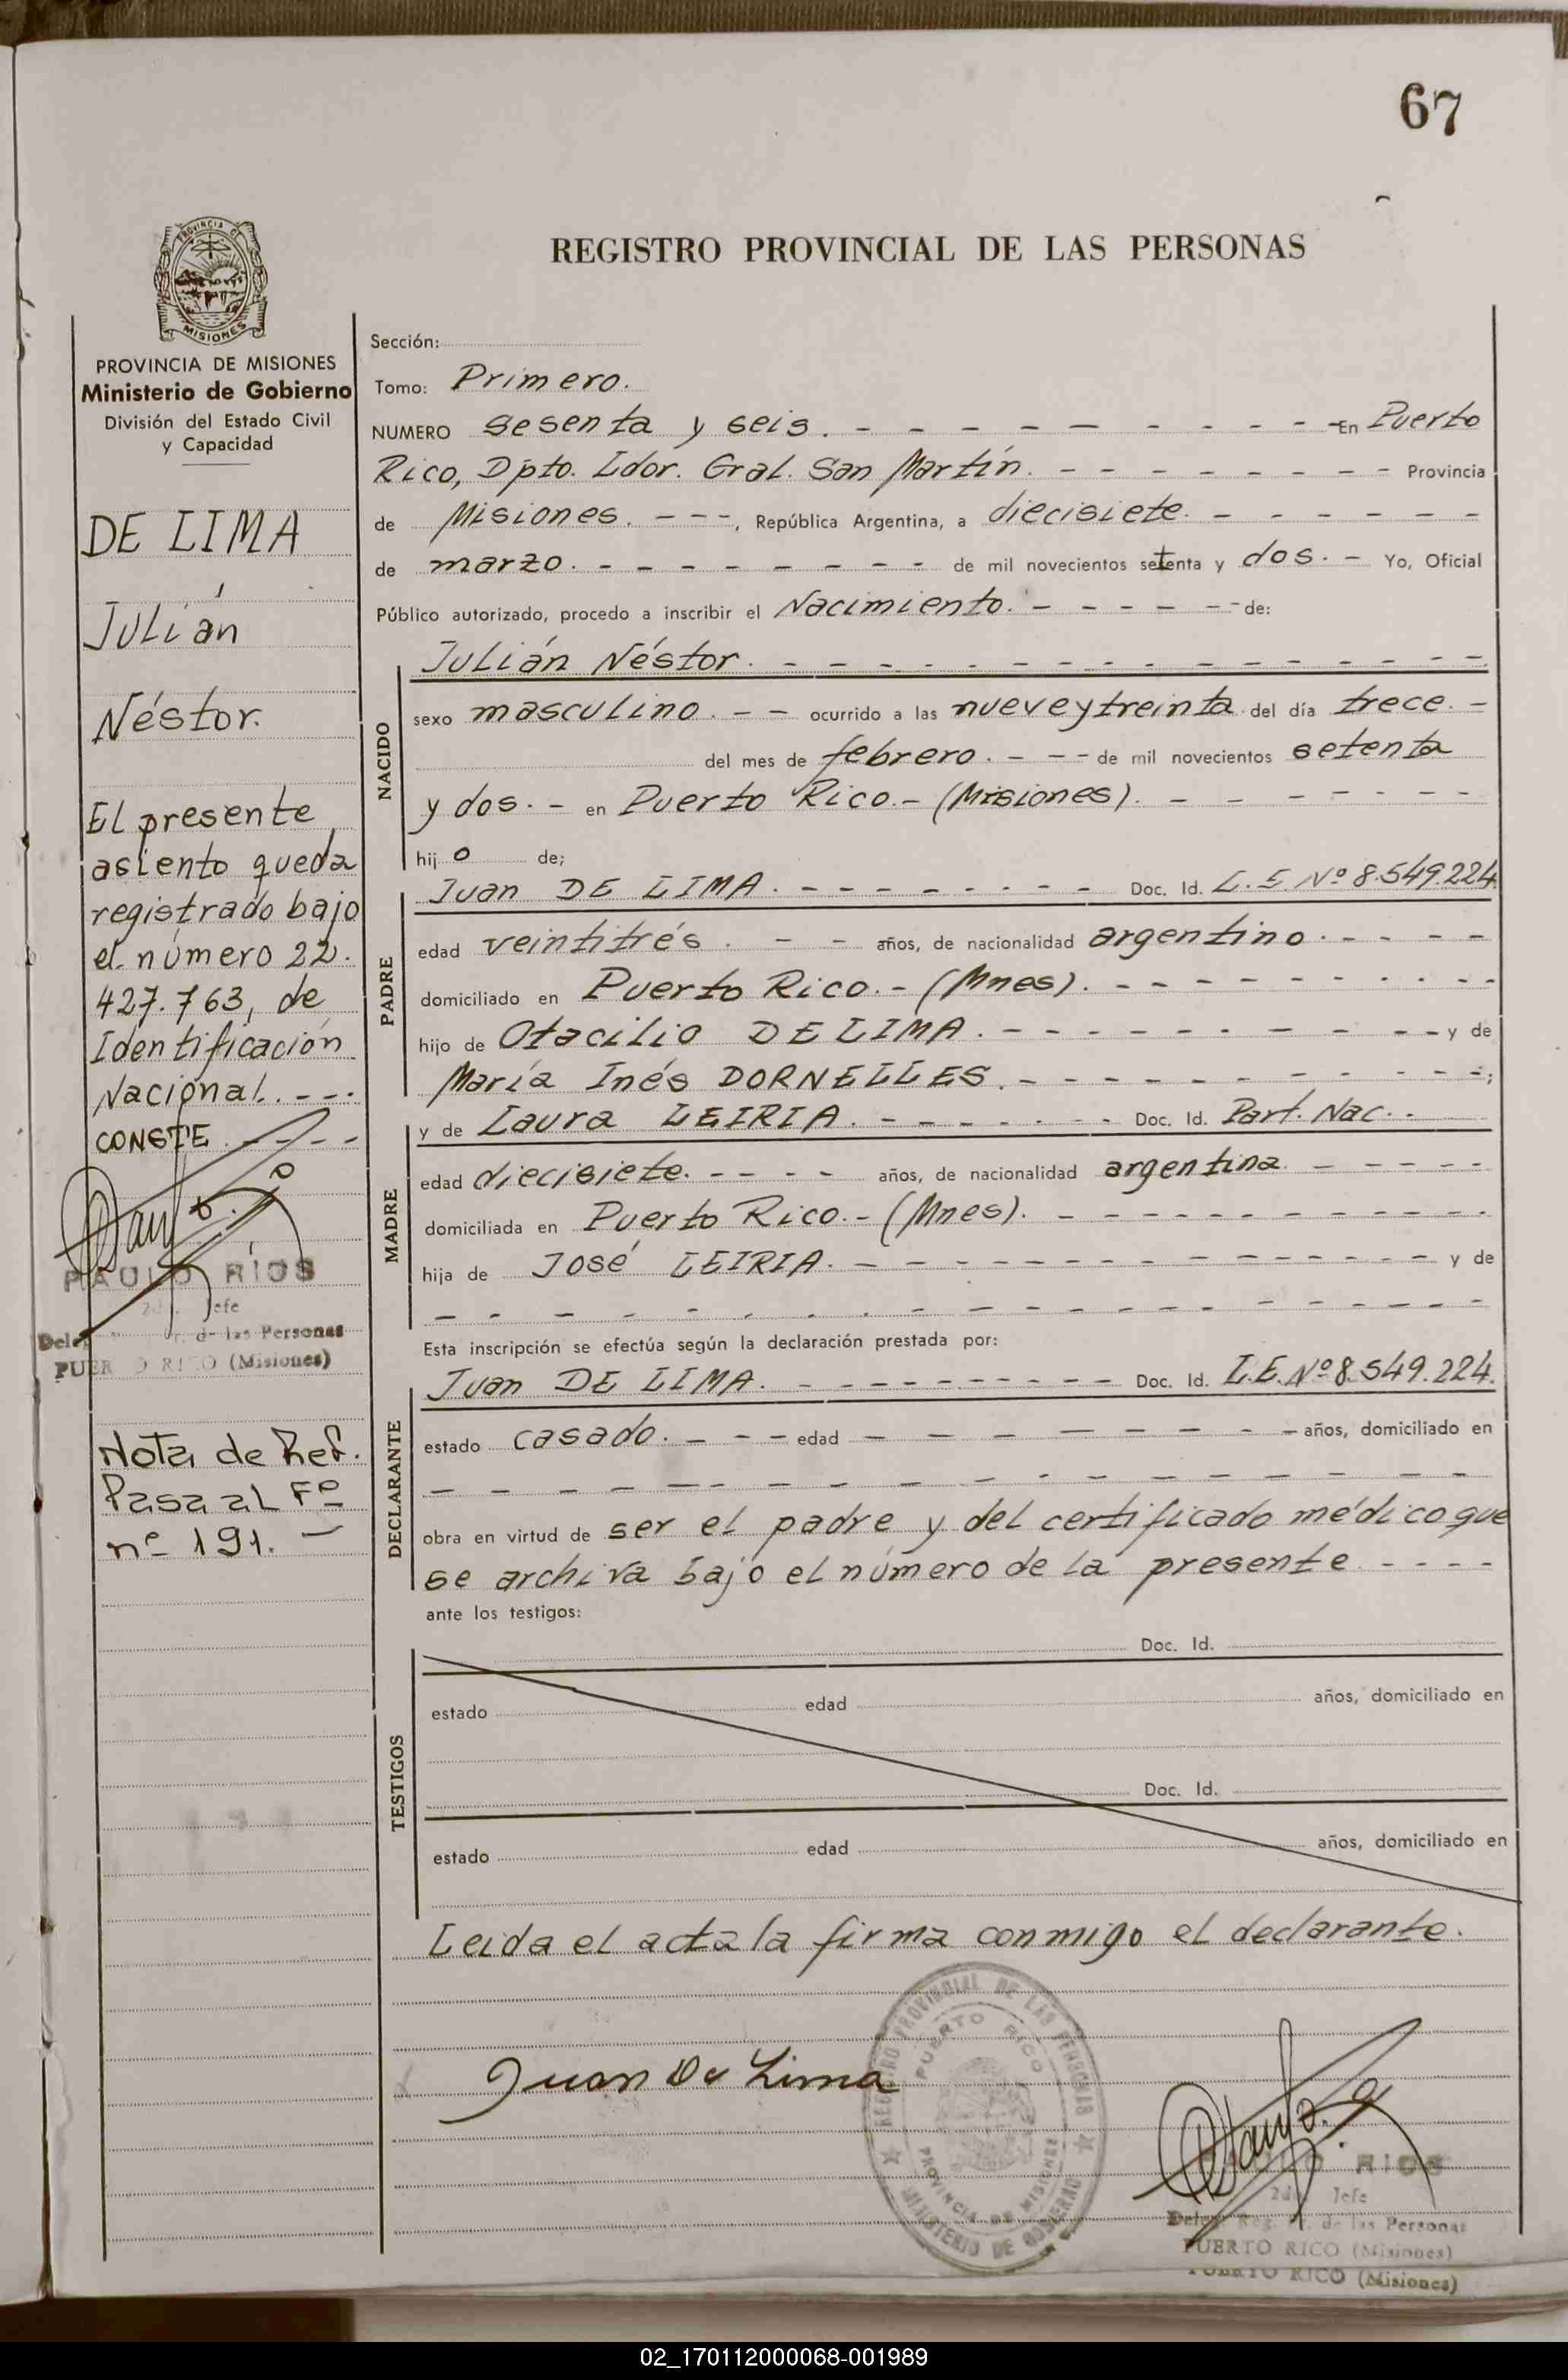 67
REGISTRO PROVINCIAL DE LAS PERSONAS
MISIONES
PROVINCIA DE MISIONES
Ministerio de Gobierno
División del Estado Civil
y Capacidad
DE LIMA
Julián
Néstor.
El presente
asiento queda
registrado bajo
el número 22.
427.763, de
Identificación
Nacional. - - -.
CONSTE. - - - -
PAULO RÍOS
2do. Jefe
de las Personas
PUERTO RICO (Misiones)
Nota de Ref.
Pasa al Fº
nº 191. -
Sección:
Tomo: Primero.
NUMERO sesenta y seis. - - - - - - - - - - En Puerto
Rico, Dpto. Ldor. Gral. San Martín. - - - - - - - - Provincia
de Misiones. - - -, República Argentina, a diecisiete. - - - - - -
de marzo. - - - - - - - - - de mil novecientos setenta y dos. - Yo, Oficial
Público autorizado, procedo a inscribir el Nacimiento. - - - - - - de:
NACIDO
Julián Néstor. - - - - - - - - - - - - - - - -
sexo masculino. - - ocurrido a las nueve y treinta del día trece. -
del mes de febrero. - - - de mil novecientos setenta
y dos. - en Puerto Rico.- (Misiones). - - - - - - - -
hij o de;
PADRE
Juan DE LIMA. - - - - - - - - Doc. Id. L.E. Nº 8.549.224
edad veintitrés. - - años, de nacionalidad argentino. - - - -
domiciliado en Puerto Rico.- (Mnes). - - - - - - - - -
hijo de Otacilio DE LIMA. - - - - - - - - - - y de
María Inés DORNELLES. - - - - - - - - - - -;
MADRE
y de Laura LEIRIA. - - - - - - Doc. Id. Part. Nac. -
edad diecisiete. - - - - años, de nacionalidad argentina. - - - - -
domiciliada en Puerto Rico.- (Mnes). - - - - - - - - - -
hija de José LEIRIA. - - - - - - - - - - - - - y de
- - - - - - - - - - - - - - - - - - - -
Esta inscripción se efectúa según la declaración prestada por:
DECLARANTE
Juan DE LIMA. - - - - - - - - - - Doc. Id. L.E. Nº 8.549.224.
estado casado. - - - edad - - - - - - - - - años, domiciliado en
- - - - - - - - - - - - - - - - - -
obra en virtud de ser el padre y del certificado médico que
se archiva bajo el número de la presente - - - -
ante los testigos:
TESTIGOS
Doc. Id.
estado edad años, domiciliado en
Doc. Id.
estado edad años, domiciliado en
Leida el acta la firma conmigo el declarante.
Juan De Lima
REGISTRO PROVINCIAL DE LAS PERSONAS
PUERTO RICO
PROVINCIA DE MISIONES
MINISTERIO DE GOBIERNO
RIOS
2do. Jefe
Deleg. Reg. de las Personas
PUERTO RICO (Misiones)
PUERTO RICO (Misiones)
02_170112000068-001989